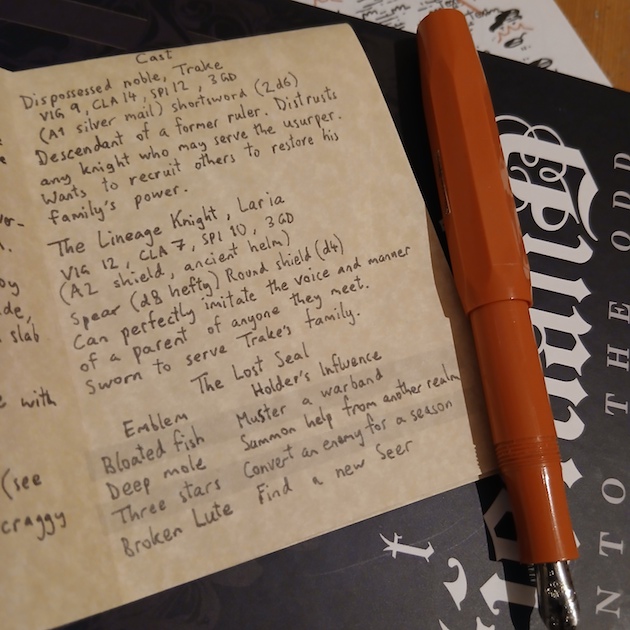 Cast
Dispossessed noble, Trake
VIG 9, CLA 14, SPI 12, 3GD
(A1 silver mail) shortsword (2d6)
Descendant of a former ruler. Distrusts
any knight who may serve the usurper.
Wants to recruit others to restore his
family's power.
The Lineage Knight, Laria
VIG 12, CLA 7, SPI 10, 3GD
(A2 shield, ancient helm)
Spear (d8 hefty) Round shield (d4)
Can perfectly imitate the voice and manner
of a parent of anyone they meet.
Sworn to serve Trake's family.
The Lost Seal
Emblem Holder's Influence
Bloated fish Muster a warband
Deep mole Summon help from another realm
Three stars Convert an enemy for a season
Broken Lute Find a new Seer
slab
with
(see
craggy
INTO THE ODD